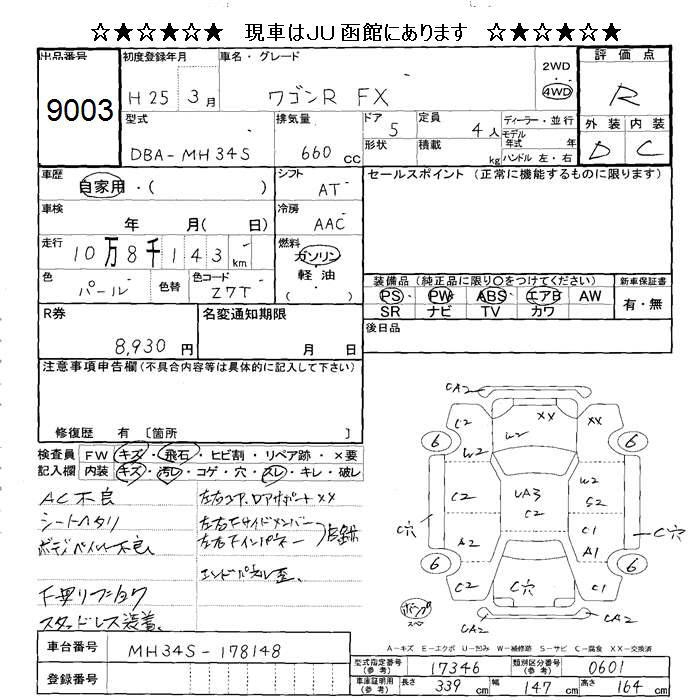 ☆★☆★☆★☆ 現車はJU函館にあります ☆★☆★☆★☆
出品番号 9003
初度登録年月 H25 3月
車名・グレード ワゴンR FX
2WD 4WD
評価点 R
外装 内装
D C
型式 DBA-MH34S
排気量 660 cc
ドア 5
形状
定員 4人
積載 kg
ディーラー・並行
モデル年式 年
ハンドル 左・右
車歴 自家用・( )
シフト AT
車検 年 月( 日)
冷房 AAC
走行 10万8千143km
燃料 ガソリン・軽油 ( )
色 パール 色替
色コード Z7T
セールスポイント(正常に機能するものに限ります)
装備品(純正品に限り○をつけてください)
PS PW ABS エアB AW
SR ナビ TV カワ
新車保証書 有・無
後日品
R券 8,930円
名変通知期限 月 日
注意事項申告欄(不具合内容等は具体的に記入して下さい)
修復歴 有 [箇所
検査員記入欄
FW キズ・飛石・ヒビ割・リペア跡・×要
内装 キズ・汚レ・コゲ・穴・スレ・キレ・破レ
AC不良
シートヘタリ
下廻リ
スタッドレス装着
左右
左右下サイドメンバー
左右下インパネー
CA2
C2 W2 XX XX
6 6
W2
C2 UA3 C2 S2
C穴 C穴
A2 C1 A1
6 6
C2 C穴 C2
バンプ
CA2 CA2
A-キズ E-エクボ U-凹み W-補修跡 S-サビ C-腐食 XX-交換済
車台番号 MH34S-178148
登録番号
型式指定番号(参考) 17346
類別区分番号(参考) 0601
車庫証明用(参考) 長さ 339 cm 幅 147 cm 高さ 164 cm